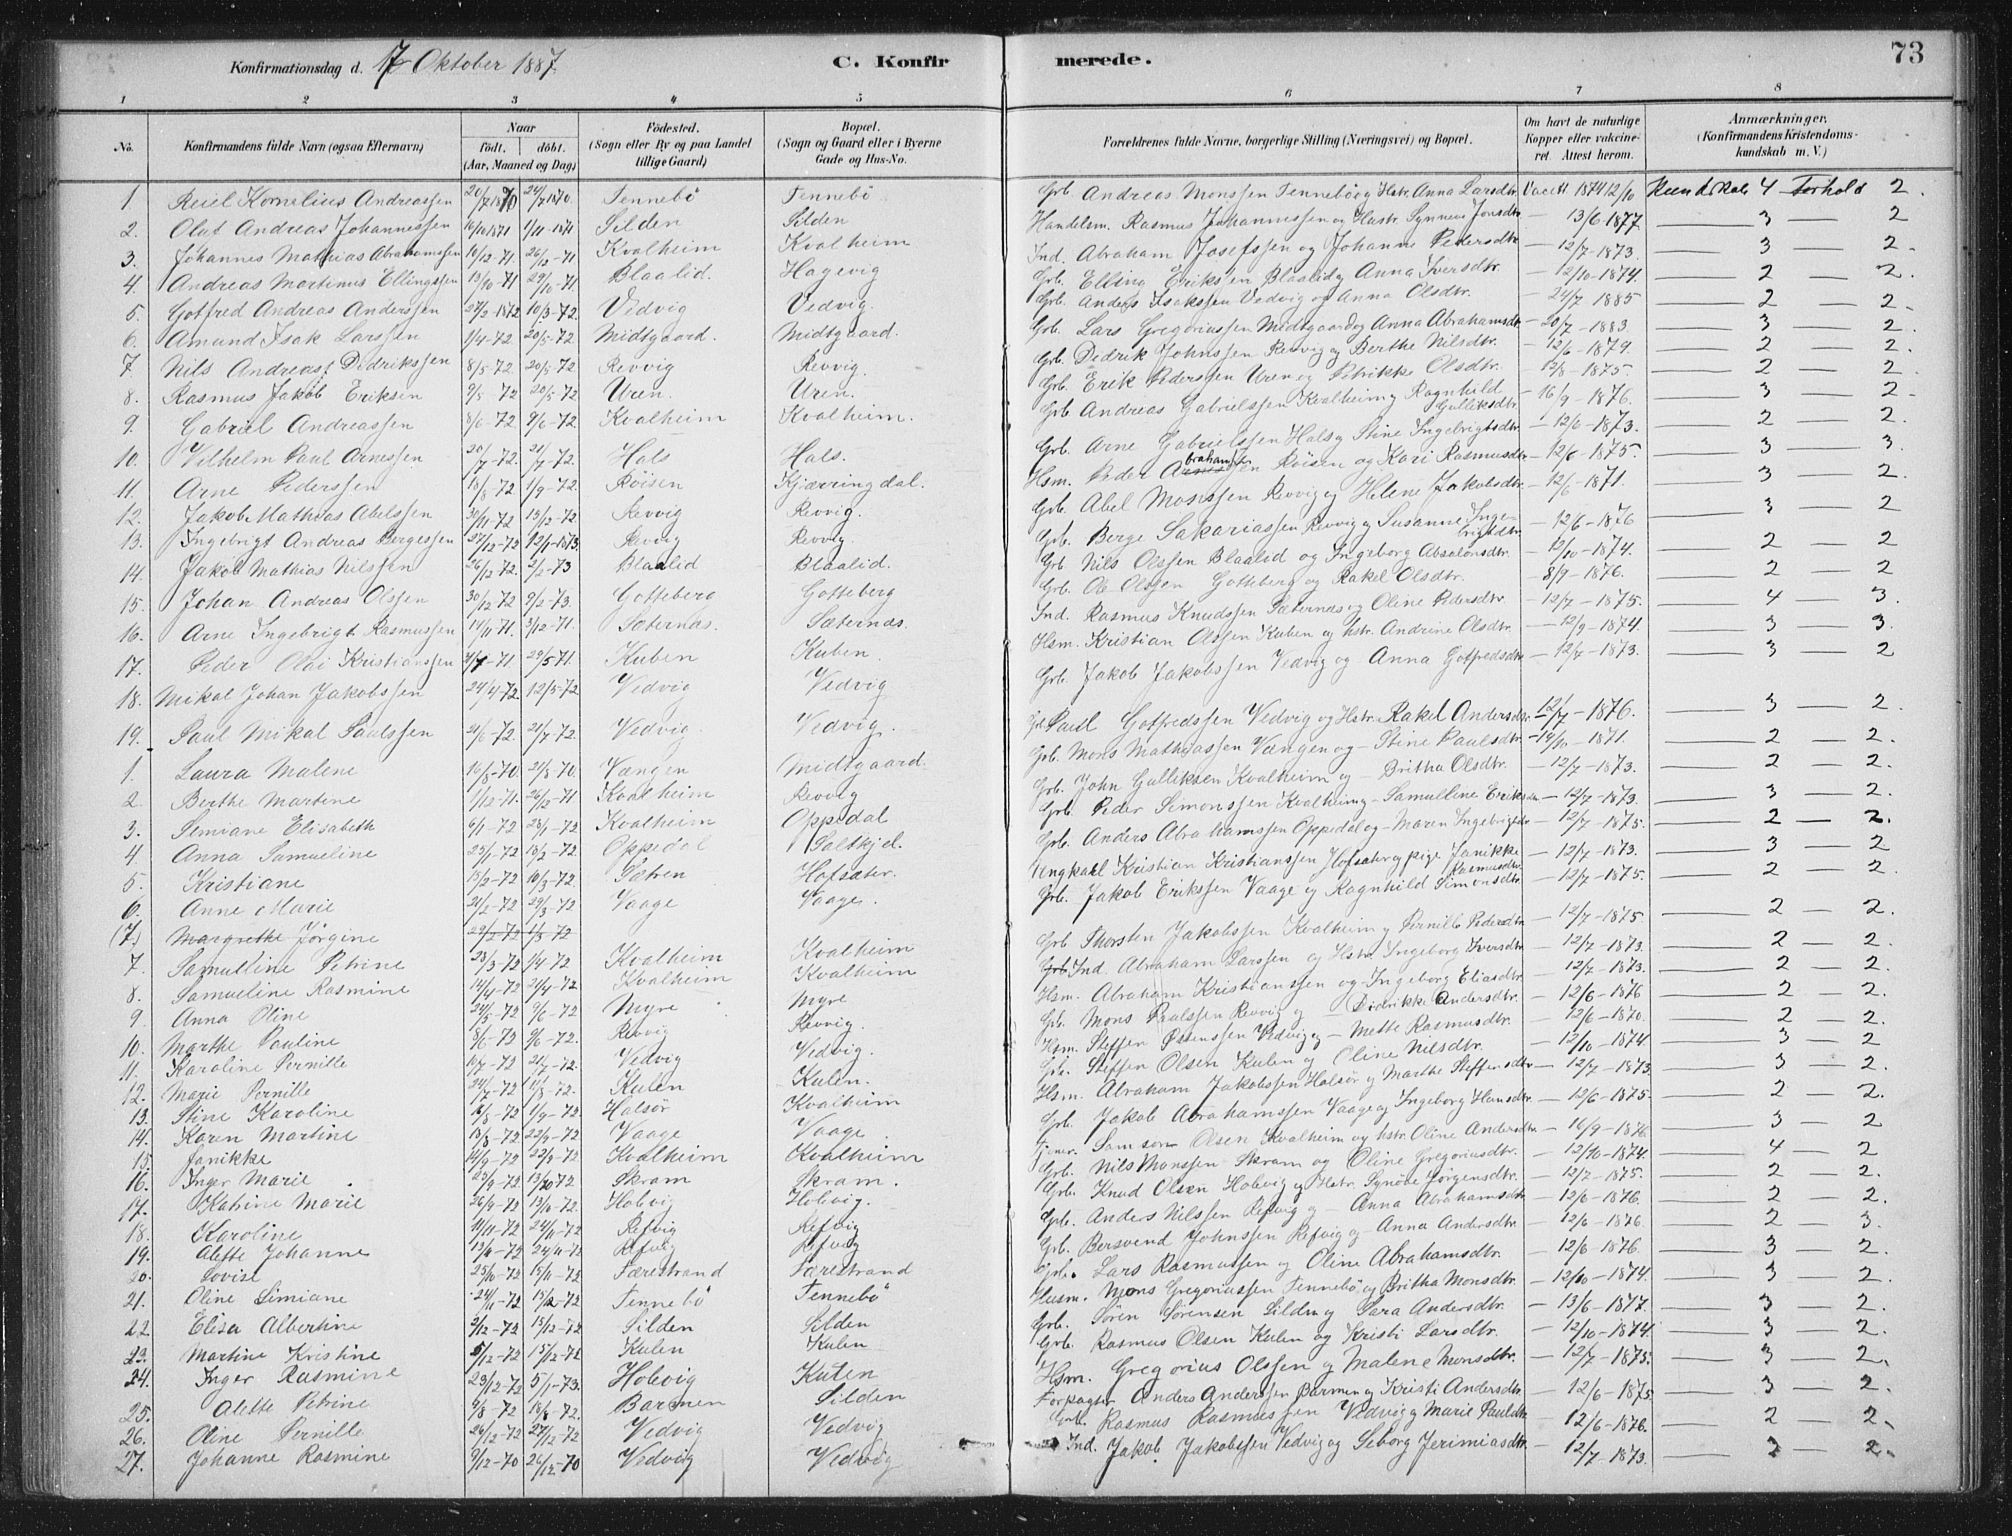 Konfirmationsdag d. 17 Oktober 1887. C. Konfirmerede. 73
1 2 3 4 5 6 7 8
No. Konfirmandens fulde Navn (ogsaa Efternavn) Naar født, døbt. (Aar, Maaned og Dag) Fødested. (Sogn eller By og paa Landet tillige Gaard) Bopæl. (Sogn og Gaard eller i Byerne Gade og Hus-No. Forældrenes fulde Navne, borgerlige Stilling (Næringsvei) og Bopæl. Om havt de naturlige Kopper eller vakcineret. Attest herom. Anmærkninger. (Konfirmandens Kristendomskundskab m. V.)
1. Reiel Kornelius Andreassen 20/7 1870 24/7 1870. Tennebö Tennebö Grb. Andreas Monssen Tennebö og Hstr. Anna Larsdtr Vacctt 1874 12/10 Kundskab 4 Forhold 2.
2. Olai Andreas Johannessen 16/10 1871 Silden Silden Handelsm. Rasmus Johannessen og Hustr. Synneve Jonsdtr — 13/6 1877 — 3 — 2
3. Johannes Mathias Abrahamssen 10/12-71. 26/12-71 Kvalheim Kvalheim Ind. Abraham Josefssen og Johanne Pedersdtr — 12/7-1873. — 3 — 2.
4. Andreas Martinus Ellingssen 13/10-71 29/10-71 Blaalid. Hagevig Grb. Elling Erikssen Blaalid og Anna Iversdtr. — 12/10-1874. — 2 — 2.
5. Gotfred Andreas Anderssen 27/2-1872 10/3-72. Vedvig Vedvig. Grb. Anders Isakssen Vedvig og Anna Olsdtr. — 24/7 1885 — 2 — 2.
6. Amund Isak Larssen 1/4-72 20/5-72 Midtgaard. Midtgaard. Grb. Lars Gregoriussen Midtgaard og Anna Abrahamsdtr — 20/7-1883. — 3 — 2.
7 Nils Andreas Didrikssen 8/5-72 20/5-72 Revvig Revvig. Grb. Didrik Johnssen Revvig og Berthe Nilsdtr. — 12/6-1879. — 2 — 2.
8. Rasmus Jakob Eriksen 9/5 72 20/5-72 Uren. Uren. Grb. Erik Pederssen Uren og Petrikke Olsdtr. — 12/8-1875. — 2 — 2.
9. Gabriel Andreassen 8/6-72 9/6-72. Kvalheim Kvalheim. Grb. Andreas Gabrielssen Kvalheim og Ragnhild Gulliksdtr. — 16/9-1876. — 3 — 2
10. Vilhelm Paul Arnessen 20/7-72. 21/7-72. Hals Hals. Grb. Arne Gabrielssen Hals og Stine Ingebrigtsdtr — 12/6-1873. — 2 — 2.
11. Arne Pederssen 18/8-72 1/9-72. Röisen Kjærringdal. Hsm. Peder Abrahamssen Röisen og Kari Rasmusdtr — 12/6 1875. — 3 — 3.
12. Jakob Mathias Abelssen 30/11-72 13/12-72. Revvig Revvig. Grb. Abel Monssen Revvig og Helene Jakobsdtr. — 12/6-1871. — 3 — 2.
13. Ingebrigt Andreas Bergessen 27/12-72 12/1-1873. Revvig Revvig. Grb. Berge Sakariassen Revvig og Susanne Ingebrigtsdtr — 12/6-1876 — 3 — 2
14. Jakob Mathias Nilssen 26/12 72. 2/2-73 Blaalid Blaalid. Grb. Nils Olssen Blaalid og Ingeborg Absalonsdtr. — 12/10-1874. — 2 — 2
15. Johan Andreas Olssen 30/12-72 9/2-73. Gotteberg Gotteberg Grb. Ole Olssen Gotteberg og Rakel Olsdtr. — 8/9-1876. — 2 — 2
16. Arne Ingebrigt Rasmussen 14/11 71. 3/12-71. Sæternes. Sæternes. Ind. Rasmus Knudssen Sæternes og Oline Pedersdtr — 12/7-1875. — 4 — 3.
17. Peder Olai Kristianssen 29/5 71. Kuben Kuben. Hsm. Kristian Olssen Kuben og hstr. Andrine Olsdtr — 12/9-1874. — 3 — 3.
18. Mikal Johan Jakobssen 24/4-72. 12/5-72 Vedvig Vedvig Grb. Jakob Jakobssen Vedvig og Anna Gotfredsdtr — 12/7-1873. — 3 — 2
19. Paul Mikal Paulssen 21/6-72. 21/7-72. Vedvig. Vedvig. Grb. Paul Gotfredssen Vedvig og Hstr. Rakel Andersdtr 12/7-1876. — 3 — 2.
1. Laura Malene 16/8-70. 21/8-70. Vængen Midtgaard. Grb. Mons Mathiassen Vængen og — Stine Paulsdtr — 19/10-1871. — 2 — 2.
2. Berthe Martine 1/12-71. 26/12-71 Kvalheim Revvig Grb. John Gulliksen Kvalheim og — Britha Olsdtr. — 12/7-1873. — 2 — 2.
3. Simiane Elisabeth 6/1-72 28/1-72 Kvalheim Oppedal Grb. Peder Simonssen Kvalheim og — Samulline Eriksdtr — 12/7-1873. — 3 — 2.
4. Anna Samueline 23/1-72 18/2-72. Oppedal Saltkjel. Grb. Anders Abrahamssen Oppedal og — Maren Ingebrigtsdtr — 12/7-1875. — 2 — 2.
5. Kristiane 15/2-72 10/3-72. Sætren Hofsæter. Ungkarl Kristian Kristianssen Hofsæter og pige Janikke Rasmusdtr. — 12/7-1873. — 3 — 2
6. Anne Marie 21/2-72 29/3-72 Vaage Vaage. Grb. Jakob Erikssen Vaage og Ragnhild Simonsdtr. — 12/7-1875. — 2 — 2.
(7.) Margrethe Jörgine 29/2-72 1/3 72
7. Samulline Petrine 23/3-72 1/4-72 Kvalheim Kvalheim Grb Thorsten Jakobssen Kvalheim og Pernille Pedersdtr — 12/7-1875 — 2 — 2.
8. Samueline Rasmine 14/4-72 21/4-72. Kvalheim Kvalheim Grb Ind. Abraham Larssen og Hstr. Ingeborg Iversdtr — 12/7-1873. — 2 — 2.
9. Anna Oline 24/5-72 9/6-72 Myre Myre Hsm. Abraham Kristianssen og Ingeborg Eliasdtr. — 12/7-1873. — 2 — 2.
10. Marthe Pauline 8/6-72 9/6-72. Revvig Revvig. Grb. Mons Paulssen Revvig og — Didrikke Andersdtr. — 12/6-1876 — 2 — 2.
11. Karoline Pernille 10/7-72 21/7-72. Vedvig Vedvig. Hsm. Steffen Østenssen Vedvig og — Mette Rasmusdtr. — 12/6-1870. — 2 — 2.
12. Marie Pernille 24/7-72 11/8-72. Kulen Kulen. Grb. Steffen Olsen Kulen og Oline Nilsdtr. — 12/10-1874 — 3 — 2
13. Stine Karoline 16/8-72 1/9-72 Halsör Kvalheim Hsm. Abraham Jakobssen Halsör og Marthe Steffensdtr — 12/7-1873. — 2 — 2.
14. Karen Martine 18/8-72 22/9-72 Vaage Vaage. Grb. Jakob Abrahamssen Vaage og Ingeborg Hansdtr. — 12/6-1875. — 2 — 2.
15. Janikke 14/9-72 22/9-72 Kvalheim Kvalheim Tjener. Samson Olsen Kvalheim og hstr. Oline Andersdtr — 16/9-1876. — 3 — 2
16. Inger Marie 23/9-72 13/10 72 Skram Skram. Grb. Nils Monssen Skram og Oline Gregoriusdtr. — 12/10-1874. — 4 — 2
17. Katrine Marie 26/9-72 13/10-72. Hobvig Hobvig. Grb. Knud Olsen Hobvig og Hstr. Synöve Jörgensdtr. — 12/7-1875. — 2 — 2.
18. Karoline 11/11-72 24/11-72 Refvig Refvig Grb. Anders Nilssen Refvig og — Anna Abrahamsdtr — 12/6-1876. — 2 — 2.
19. Alette Johanne 24/11-72 Refvig Refvig Grb. Bersvend Johnssen Refvig og Anna Andersdtr. — 12/6-1876. — 2 — 3.
20. Lovise 25/10-72 15/11-72 Færestrand Færestrand Grb. Lars Rasmussen og Oline Abrahamsdtr. — 12/6 1876. — 3 — 2.
21. Oline Simiane 24/11-72 15/12-72 Tennebö Tennebö Husm. Mons Gregoriussen Tennebö og Britha Monsdtr. — 12/10-1874. — 3 — 2.
22. Elisa Albertine 2/12-72 15/12-72 Silden Silden Grb. Sören Sörensen Silden og Sara Andersdtr. — 13/6-1877. — 3 — 2.
23. Martine Kristine 5/12-72 15/12-72 Kulen Kulen Grb. Rasmus Olsen Kulen og Kristi Larsdtr. — 12/10-1874. — 3 — 2.
24. Inger Rasmine 23/12-72 5/1-73. Hobvig Kulen Hsm. Gregorius Olssen og Malene Monsdtr. — 12/7-1875. — 3 — 2.
25. Alette Petrine 9/8-72 18/8-72. Barmen Silden Forpagter Anders Anderssen Barmen og Kristi Andersdtr — 12/6-1875. — 3 — 2.
26. Oline Pernille 26/12-72 27/12-72 Vedvig Vedvig Grb. Rasmus Rasmussen Vedvig og Marie Paulsdtr 12/6-1876. — 2 — 2.
27. Johanne Rasmine 9/12-70 26/12-70 Vedvig Vedvig Ind. Jakob Jakobssen Vedvig og Seborg Jerimiasdtr — 12/7-1873. — 2 — 2.